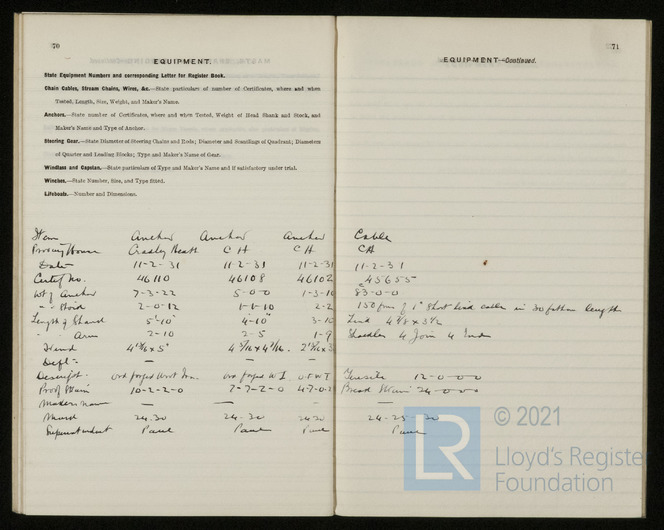 70
EQUIPMENT.
State Equipment Numbers and corresponding Letter for Register Book.
Chain Cables, Stream Chains, Wires, &c.—State particulars of number of Certificates, where and when
Tested, Length, Size, Weight, and Maker's Name.
Anchors.—State number of Certificates, where and when Tested, Weight of Head Shank and Stock, and
Maker's Name and Type of Anchor.
Steering Gear.—State Diameter of Steering Chains and Rods; Diameter and Scantlings of Quadrant; Diameters
of Quarter and Leading Blocks; Type and Maker's Name of Gear.
Windlass and Capstan.—State particulars of Type and Maker's Name and if satisfactory under trial.
Winches.—State Number, Size, and Type fitted.
Lifeboats.—Number and Dimensions.
Item Anchor Anchor Anchor
Proving House Cradley Heath C H C H
Date 11-2-31 11-2-31 11-2-31
Certif No. 46110 46108 46102
Wt of Anchor 7-3-22 5-0-0
" " Stock 2-0-12 1-1-10 2-2
Length of Shank 5'-10" 4-10" 3-10
" Arm 2-10 2-5 1-9
Proof Strain 10-2-2-0 7-7-2-0
Makers name — —
24.30 24-30
Superintendent Paul Paul Paul
71
EQUIPMENT—Continued.
Cable
CH
11-2-31
45655
83-0-0
150 fms of 1" Stud link cable in 30 fathom lengths
Link 4 7/8 x 3 1/2
Shackles 4 Join 4 End
Tensile 12-0-0-0
Break Strain 24-0-0-0
—
24-25 30
Paul
© 2021
LR
Lloyd's Register
Foundation